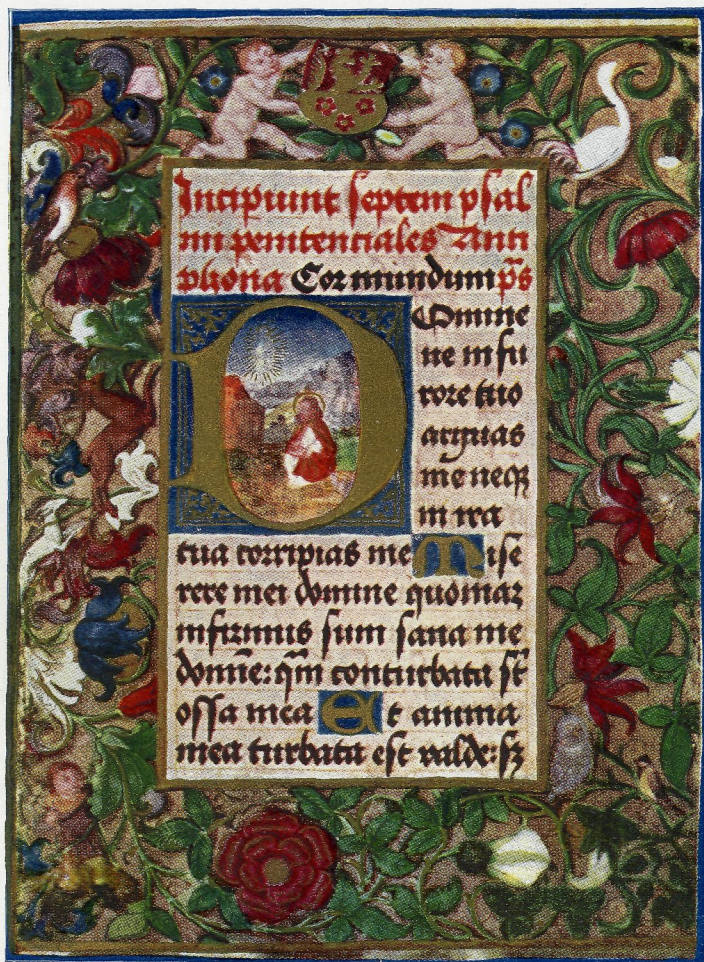 Incipiunt septem psal
mi penitentiales Anti
phona Cor mundum ps̄
Domine
ne in fu
rore tuo
arguas
me neqꝫ
in ira
tua corripias me Mise
rere mei domine quoniaꝫ
infirmus sum sana me
domīe: qm̄ conturbata st̄
ossa mea Et anima
mea turbata est valde: sꝫ